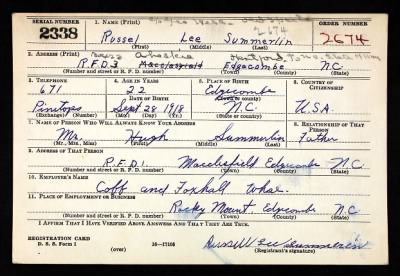 SERIAL NUMBER
1. NAME (Print)
ORDER NUMBER
2338
Russel Lee Summerlin
2674
(First) (Middle) (Last)
2. ADDRESS (Print)
R.F.D. 3 Macclesfield Edgecombe N.C.
(Number and street or R. F. D. number) (Town) (County) (State)
3. TELEPHONE
4. AGE IN YEARS
5. PLACE OF BIRTH
6. COUNTRY OF CITIZENSHIP
671
22
Edgecombe
Pinetops
DATE OF BIRTH
(Town or county)
Sept 28 1918
N.C.
U.S.A.
(Exchange) (Number)
(Mo.) (Day) (Yr.)
(State or country)
7. NAME OF PERSON WHO WILL ALWAYS KNOW YOUR ADDRESS
8. RELATIONSHIP OF THAT PERSON
Mr. Hugh Summerlin Father
(Mr., Mrs., Miss) (First) (Middle) (Last)
9. ADDRESS OF THAT PERSON
R.F.D. 1 Macclesfield Edgecombe N.C.
(Number and street or R. F. D. number) (Town) (County) (State)
10. EMPLOYER'S NAME
and Foxhall Whse.
11. PLACE OF EMPLOYMENT OR BUSINESS
Rocky Mount, Edgecombe N.C.
(Number and street or R. F. D. number) (Town) (County) (State)
I AFFIRM THAT I HAVE VERIFIED ABOVE ANSWERS AND THAT THEY ARE TRUE.
REGISTRATION CARD
D. S. S. Form 1
(over)
16—17105
Russell Lee Summerlin
(Registrant's signature)